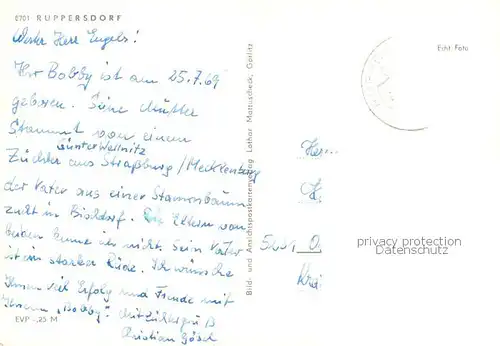 8701 RUPPERSDORF
Werter Herr Engels!
Ihr Bobby ist am 25.7.69
geboren. Seine Mutter
stammt von einem
Günter Wellnitz
Züchter aus Straßburg/Mecklenburg
der Vater aus einer Stammbaum
zucht in Bisdorf. Die Eltern von
beiden kenne ich nicht. Sein Vater
ist ein starker Rüde. Ich wünsche
Ihnen viel Erfolg und Freude mit
Ihrem „Bobby". Mit Züchtergruß
Christian Gösch
EVP -,25 M
Bild- und Ansichtspostkartenverlag Lothar Mattuscheck, Görlitz
Echt Foto
Herrn
privacy protection
Datenschutz